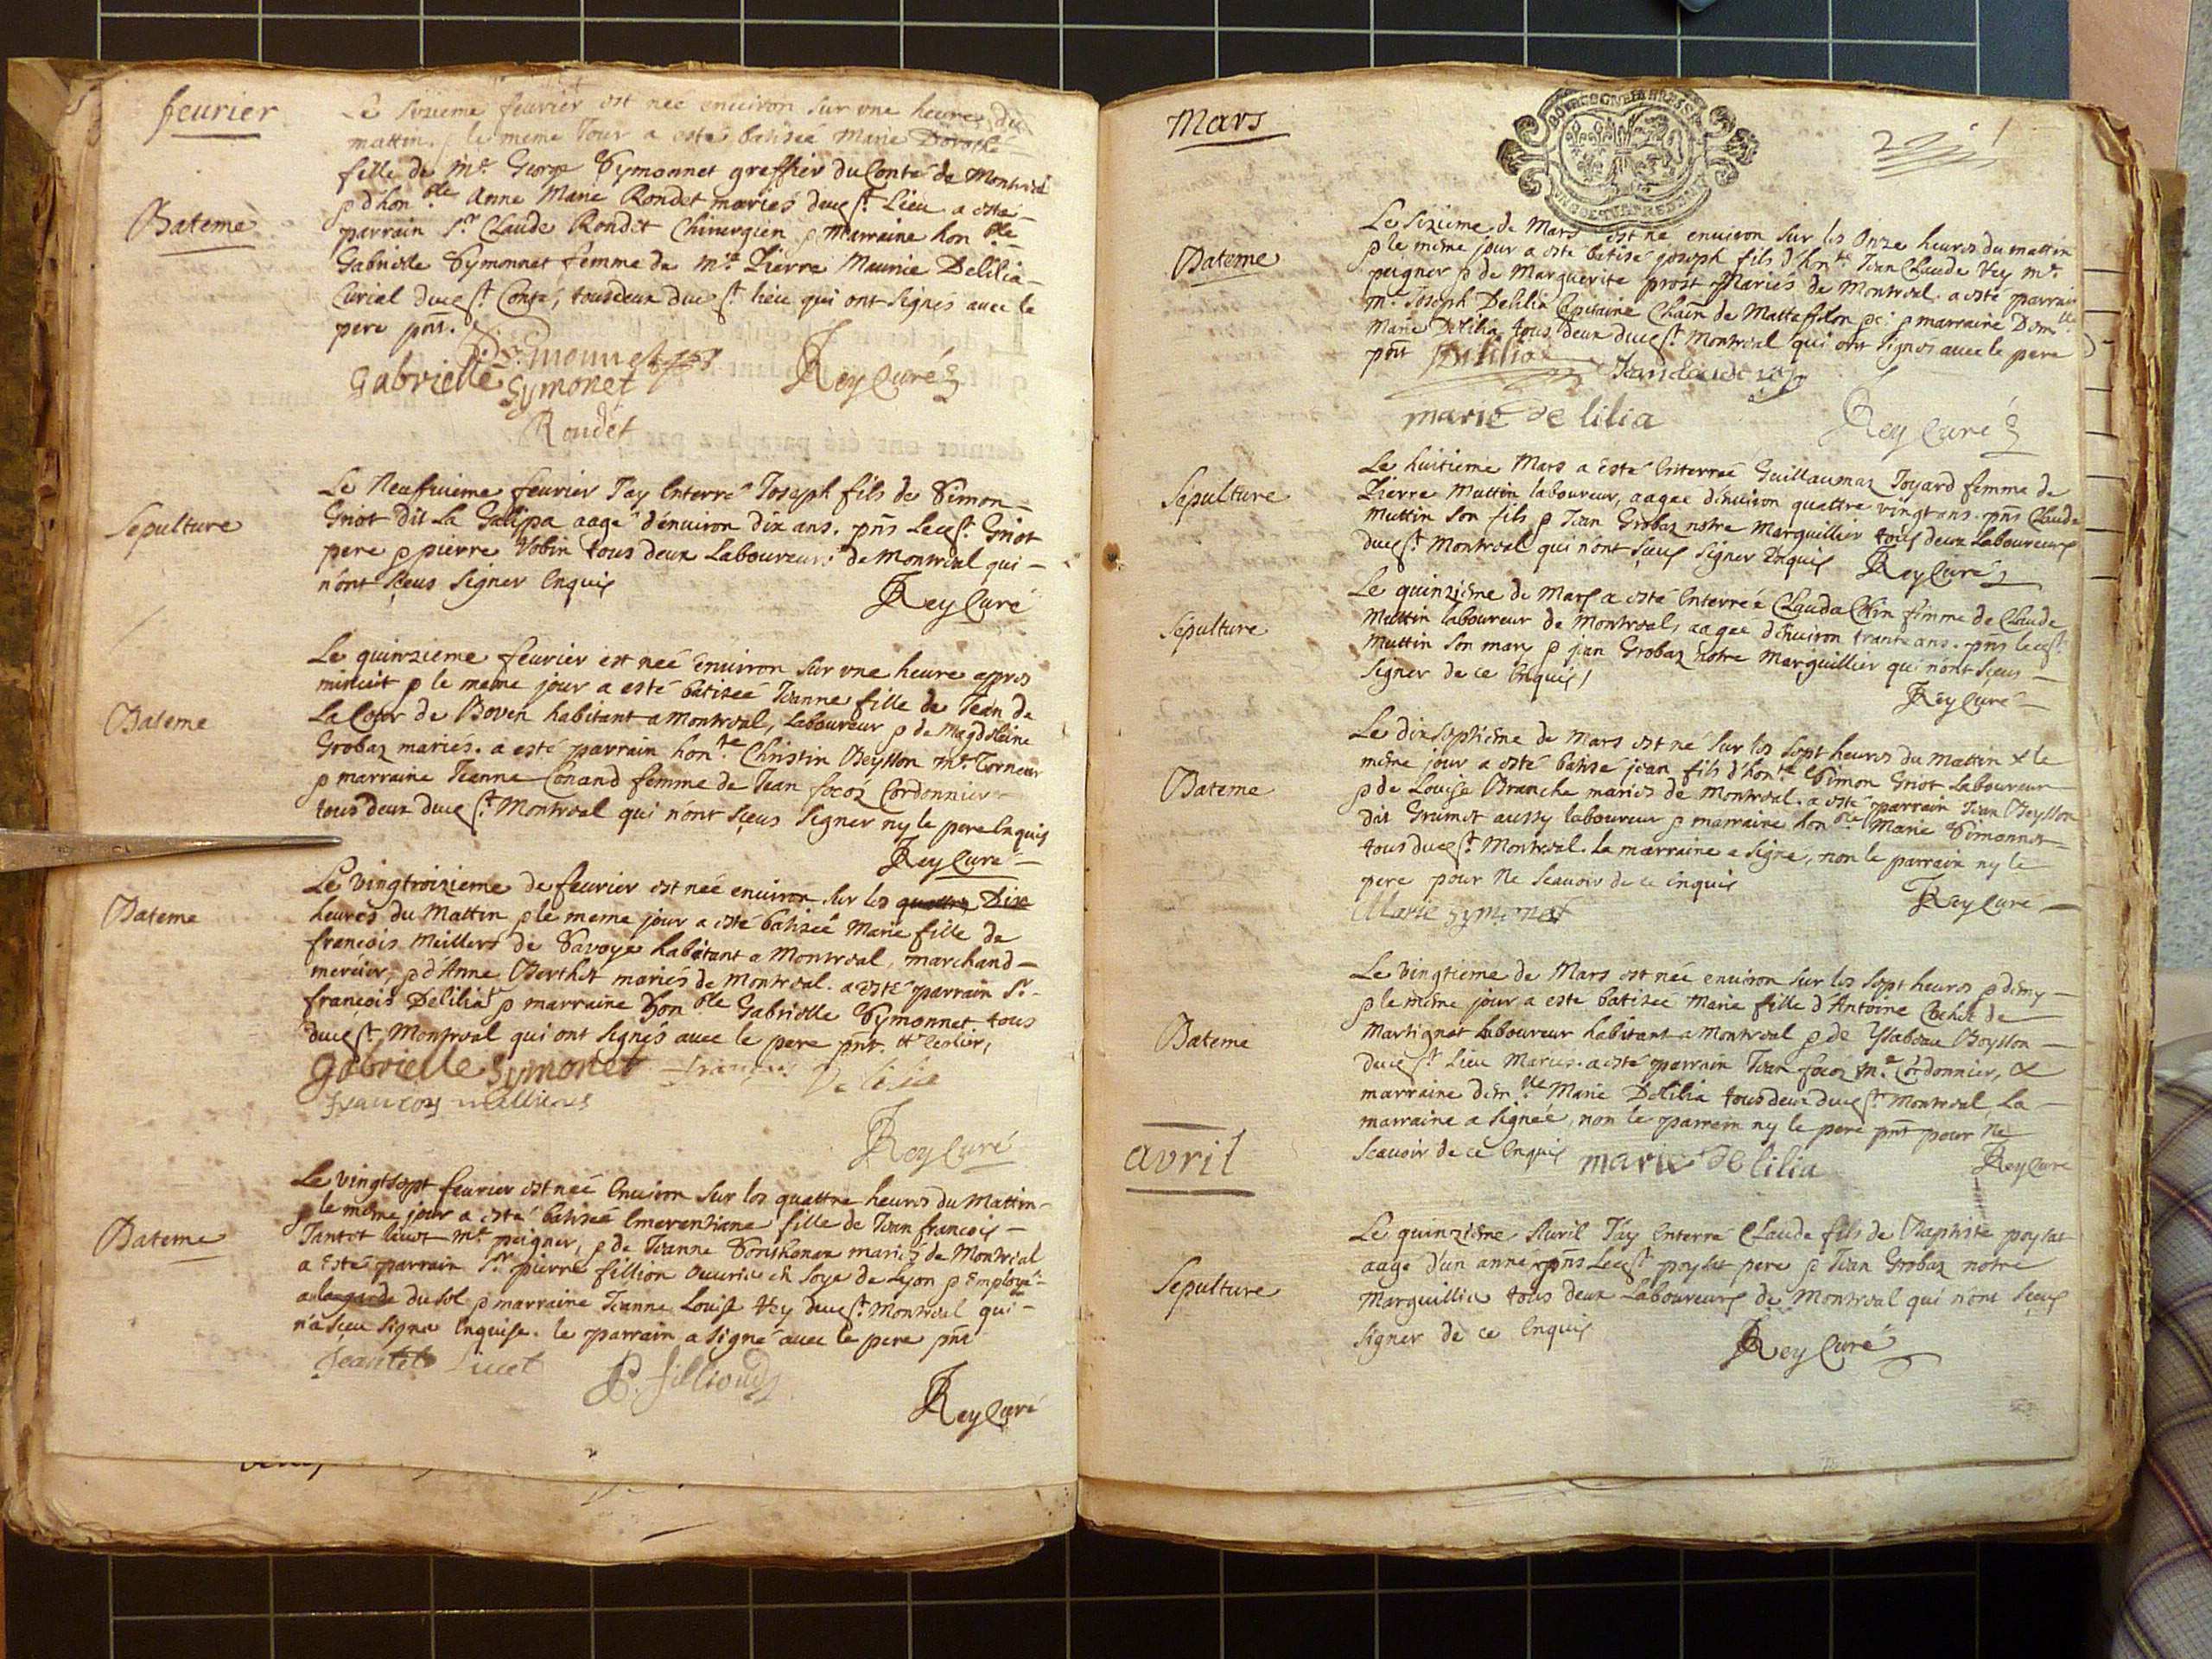 feurier
Le sixieme feurier est née enuiron sur vne heure du
mattin, le meme Jour a esté batiseé Marie Dorothé
Bateme
fille de Mr. George Symonnet greffier du Conté de Montreal
& d'hon.ble Anne Marie Rondet mariés duest. Lieu a esté
parrain Sr. Claude Rondet Chirurgien & Marraine hon.ble
Gabrielle Symonnet femme de Me. Pierre Meunie Delilia
Curial duest. Conté, tous deux duest. lieu qui ont signés auec le
pere pnt.
Symonnet
Gabrielle Symonet
Rey Curé
Rondet
Sepulture
Le Neufuieme feurier J'ay Enterré Joseph fils de Simon
Griot dit La Galipa aagé d'enuiron dix ans. pns Lecest. Griot
pere & pierre Vobin tous deux Laboureurs de Montreal qui
n'ont sçeus signer Enquis
Rey Curé
Bateme
Le quinzieme feurier est neé enuiron sur vne heure appres
minuit & le meme jour a esté batiseé Jeanne fille de Jean de
La Cour de Boven habitant a Montreal, Laboureur & de Magdeleine
Grobaz mariés. a esté parrain hon.te Christin Beysson Me. Torneur
& marraine Jeanne Conand femme de Jean focoz Cordonnier
tous deux duest. Montreal qui n'ont sçeus signer ny le pere Enquis
Rey Curé
Bateme
Le vingtroizieme de feurier est neé enuiron sur les quattre Dix
heures du Mattin & le meme jour a esté batiseé Marie fille de
françois Meillers de Sauoye habitant a Montreal, marchand
mercier, & d'Anne Berthet mariés de Montreal. a esté parrain Sr.
françois Delilia & marraine hon.ble Gabrielle Symonnet tous
duest. Montreal qui ont signés auec le pere pnt.
Gabrielle Symonet françois Delilia
francois meilliers
Rey Curé
Bateme
Le vingtsept feurier est neé Enuiron sur les quattre heures du Mattin
& le meme jour a esté batiseé Emerentiane fille de Jean françois
Jantet Lucet Me. peigner, & de Jeanne mariés de Montreal
a Esté parrain Sr. pierre fillion Ouurie en soye de Lyon & Employé
a la garde du sel & marraine Jeanne Louise Vey duest. Montreal qui
n'a sçeu signer Enquise. le parrain a signé auec le pere pnt
Jeantet Lucet P. filliond
Rey Curé
Mars
BOURGOGNE ET BRESSE
Bateme
Le sixieme de Mars est né enuiron sur les Onze heures du mattin
& le meme jour a esté batisé joseph fils d'hon.te Jean Claude Vey Me.
peigner & de Marguerite prost Mariés de Montreal. a esté parrain
Mr. Joseph Delilia Capitaine Chain de Mattafelon & marraine Dem.lle
Marie Delilia tous deux duest. Montreal qui ont signés auec le pere
pnt Delilia Jean claude vey
marie De lilia
Rey Curé
Sepulture
Le huitieme Mars a esté Enterreé Guillaumaz Joyard femme de
Pierre Muttin laboureur, aageé d'enuiron quattre vingt ans. pns Claude
Muttin son fils & Jean Grobaz notre Marguillier tous deux Laboureurs
duest. Montreal qui n'ont sçeus signer Enquis Rey Curé
Sepulture
Le quinzieme de Mars a esté Enterreé Clauda Chin femme de Claude
Muttin laboureur de Montreal, aageé d'enuiron trante ans. pns lecest.
Muttin son mary & jean Grobaz notre Marguillier qui n'ont sçeus
signer de ce Enquis
Rey Curé
Bateme
Le dixseptieme de Mars est né sur les sept heures du Mattin & le
meme jour a esté batisé jean fils d'hon.te Simon Griot Laboureur
& de Louise Branche mariés de Montreal. a esté parrain Jean Beysson
dit Grumet aussy laboureur & marraine hon.ble Marie Simonnet
tous duest. Montreal. La marraine a signé, non le parrain ny le
pere pour Ne Scauoir de ce Enquis
Marie symonet
Rey Cure
Bateme
Le vingtieme de Mars est neé enuiron sur les sept heures & demy
& le meme jour a esté batiseé Marie fille d'Antoine Cochet de
Martignat Laboureur habitant a Montreal & de Ysabeau Beysson
duest. Lieu Mariés. a esté parrain Jean focoz Me. Cordonnier, &
marraine dem.lle Marie Delilia tous deux duest. Montreal, La
marraine a signeé, non le parrein ny le pere pnt pour Ne
Scauoir de ce Enquis marie De lilia Rey Cure
avril
Sepulture
Le quinzieme Auril J'ay Enterré Claude fils de Baptiste poysat
aagé d'un anné, pns Lecest. poysat pere & Jean Grobaz notre
Marguillier tous deux Laboureurs de Montreal qui n'ont sçeus
signer de ce Enquis
Rey Curé